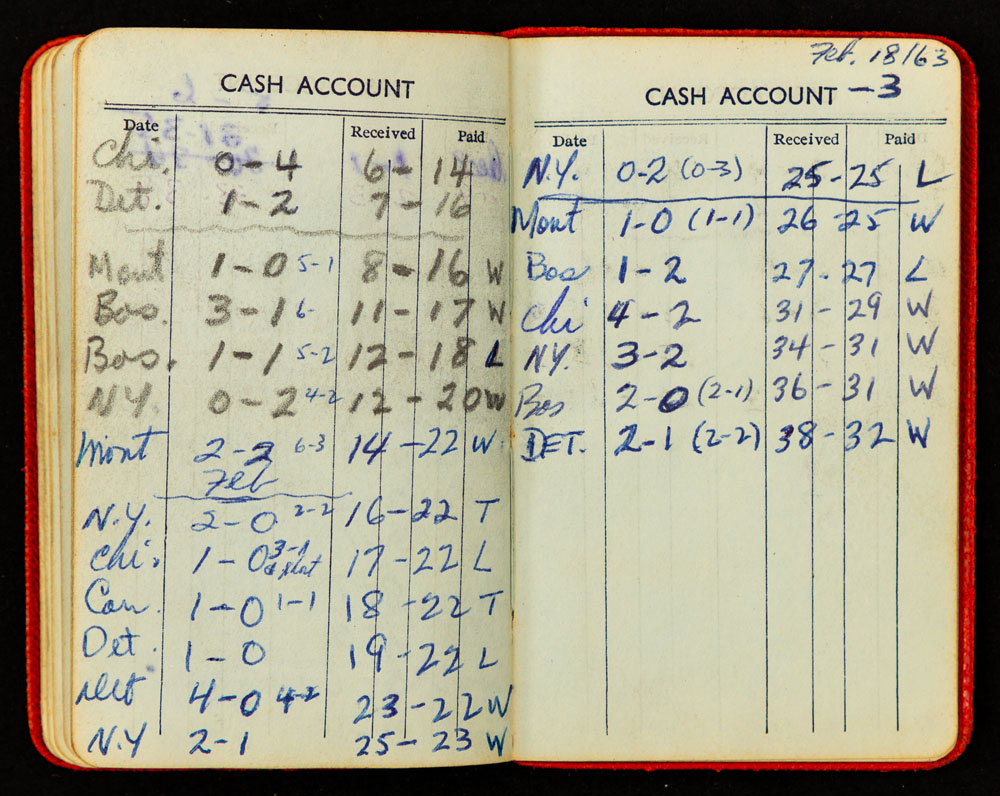 CASH ACCOUNT
Date Received Paid
Chi. 0-4 6-14
Det. 1-2 7-16
Mont 1-0 5-1 8-16 W
Bos. 3-1 6- 11-17 W
Bos. 1-1 5-2 12-18 L
NY. 0-2 4-2 12-20 W
Mont 2-2 6-3 14-22 W
Feb
N.Y. 2-0 2-2 16-22 T
Chi. 1-0 3-1 17-22 L
Can. 1-0 1-1 18-22 T
Det. 1-0 19-22 L
4-0 4-2 23-22 W
N.Y 2-1 25-23 W
Feb. 18/63
CASH ACCOUNT -3
Date Received Paid
N.Y. 0-2 (0-3) 25-25 L
Mont 1-0 (1-1) 26-25 W
Bos 1-2 27-27 L
Chi 4-2 31-29 W
NY. 3-2 34-31 W
Bos 2-0 (2-1) 36-31 W
DET. 2-1 (2-2) 38-32 W